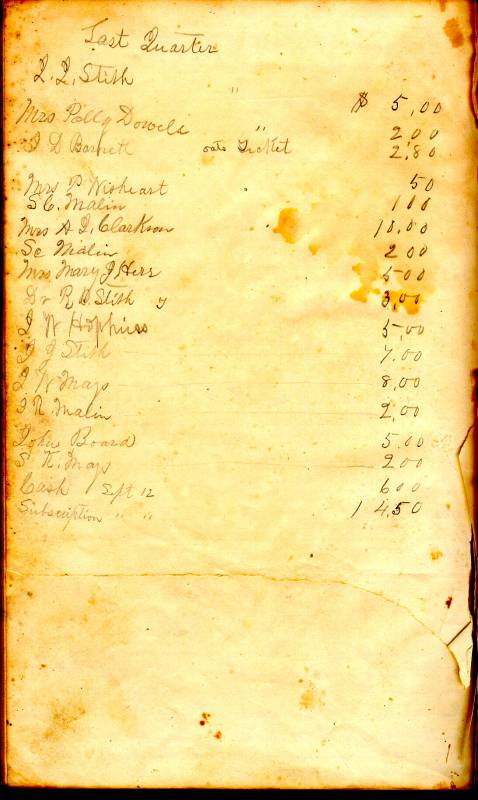 Last Quarter
J. J. Stith
" $ 5,00
Mrs Polly Dowell " 2 00
J D Barnett oats Ticket 2.80
Mrs P Wisheart 50
S C. Malin 1 00
Mrs A J. Clarkson 10.00
Sc Malin 2 00
Mrs Mary J Herr 5 00
Dr R D Stith y 3,00
J W Hopkins 5,00
J J Stith 7.00
J W Mays 8,00
J R Malin 2,00
John Board 5.00
S K. Mays 2 00
Cash Sept 12 6 00
Subscription " " 1 4.50